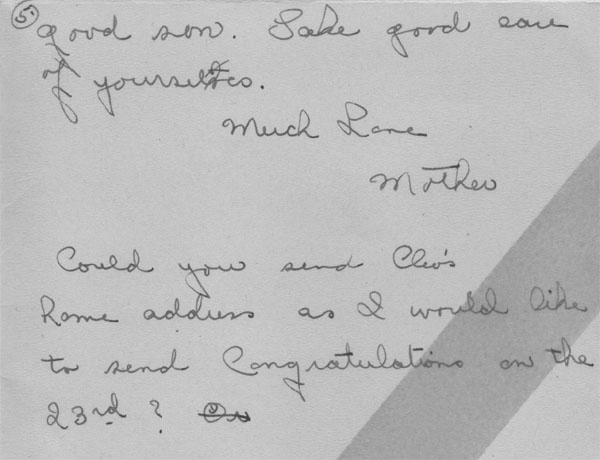 ⑤ good son. Take good care
of yourselves.
Much Love
Mother
Could you send Cleo's
home address as I would like
to send Congratulations on the
23rd?